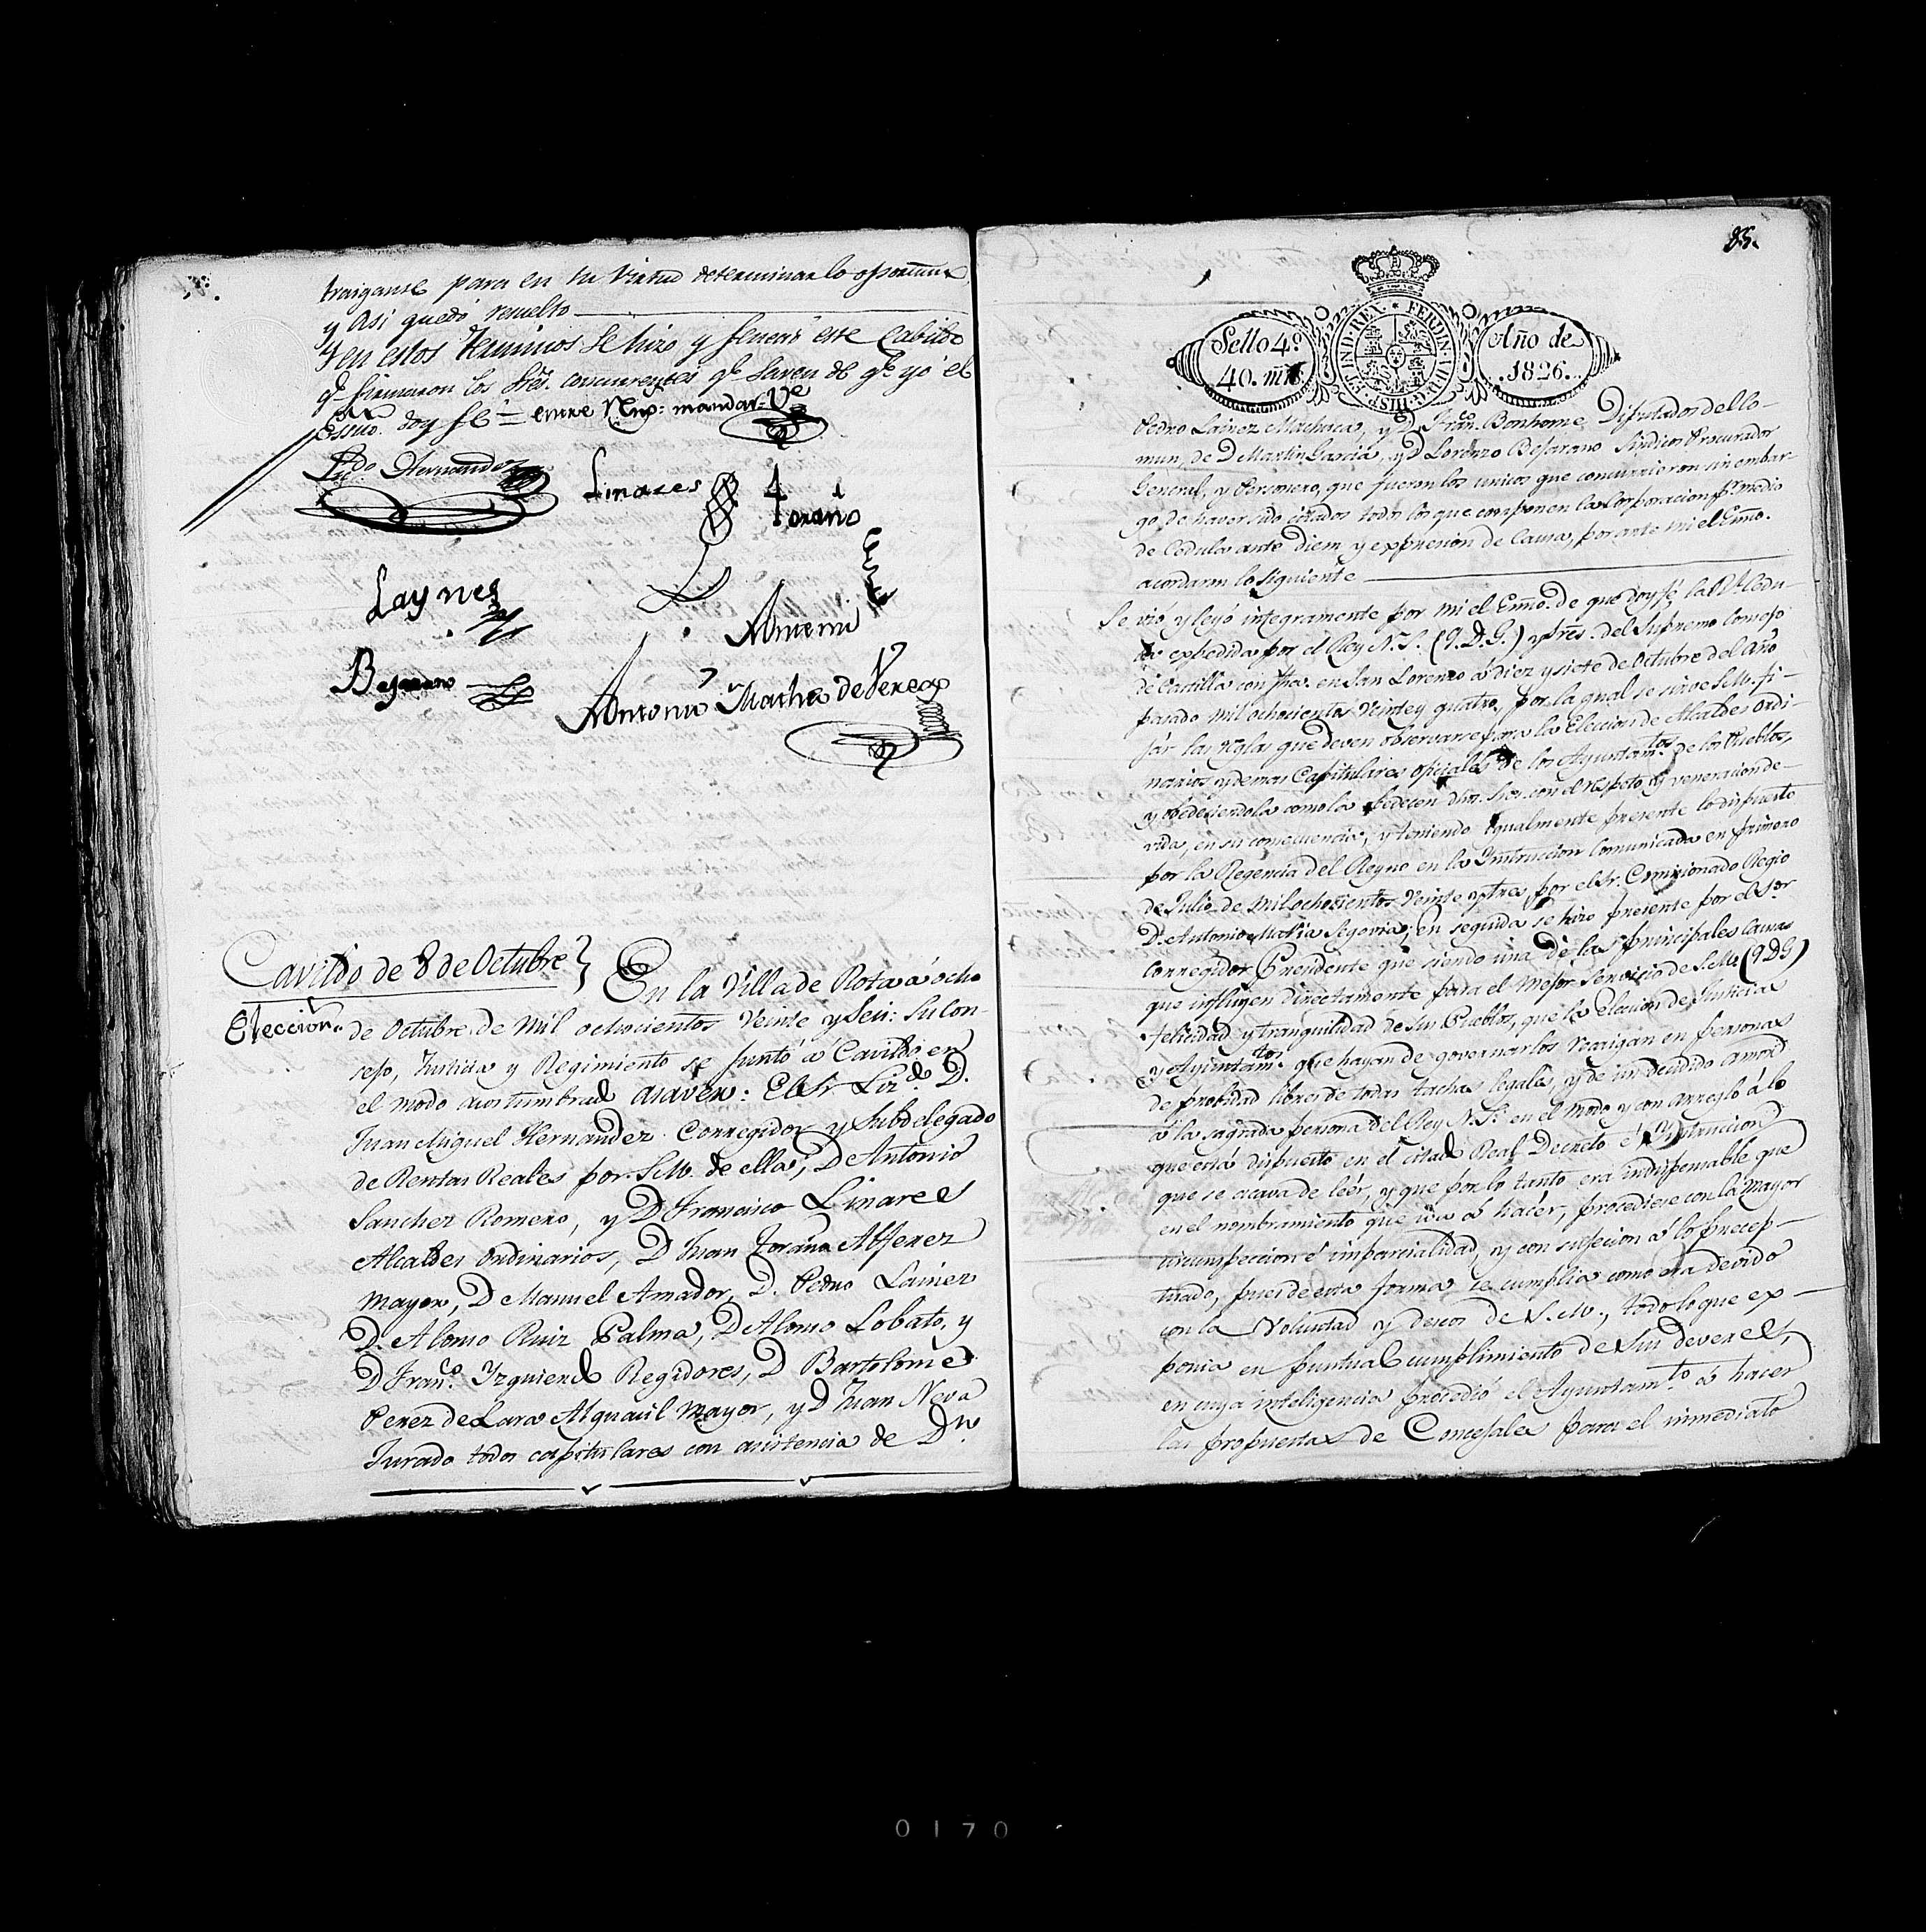 traiganse para en su virtud determinar lo oportuno,
y Asi quedó resuelto
Y en estos terminos se hizo y feneció este Cabildo
q.e firmaron los Sres. concurrentes q.e saven de q.e yo el
Essno. doy fe = entre Rengs: mandar = Ve
Lizdo Hernandez
Linares
Torano
Laynes
Bejarano
Antonio Mathe de
Cavildo de 8 de Octubre
Eleccion.
En la Villa de Rota á ocho
de Octubre de mil ochocientos veinte y seis: Su Con-
sejo, Justicia y Regimiento se juntó á Cavildo en
el modo acostumbrado asaver: El Sr. Lizdo. D.
Juan Miguel Hernandez Corregidor y Subdelegado
de Rentas Reales por S. M. de ella, D Antonio
Sanchez Romero, y D Francisco Linares
Alcaldes Ordinarios, D Juan Torano Alferez
mayor, D Manuel Amador, D. Pedro Lainez
D. Alonso Ruiz Palma, D Alonso Lobato, y
D Franco. Yzquierdo Regidores, D Bartolome
Perez de Lara Alguacil mayor, y D Juan Neva
Jurado todos capitulares con asistencia de Dn.
85.
Sello 4.º
40. mrs
FERDIN. VII. D. G. HISP. ET IND. REX
Año de
.1826.
Pedro Lainez Machuca, y D Franco. Bonhome Diputados del Co-
mun, de D Martin Garcia, y D Lorenzo Bejarano Sindico Procurador
General, y Personero, que fueron los unicos que concurrieron sin embar-
go de haver sido citados todos los que componen la Corporacion pr. medio
de Cedula ante diem y expresion de causa, por ante mi el Essno.
acordaron lo siguiente
Se vió y leyó integramente por mi el Essno. de que doy fé, la Rl. Cedu-
la expedida por el Rey N. S. (Q. D. G.) y Sres. del Supremo Consejo
de Castilla con fha. en San Lorenzo á diez y siete de Octubre del Año
pasado mil ochocientos Veinte y quatro, por la qual se sirve S. M. fi-
jar las reglas que deven observarse para la Eleccion de Alcaldes Ordi-
narios y demas Capitulares oficiales de los Ayuntamtos. de los Pueblos,
y obedeciendola como la obedecen dhos. Sres. con el respeto y veneracion de-
vida, en su consecuencia, y teniendo igualmente presente lo dispuesto
por la Regencia del Reyno en la Ynstruccion comunicada en primero
de Julio de mil ochocientos Veinte y tres por el Sr. Comisionado Regio
D. Antonio Maria Segovia; en seguida se hizo presente por el Sor.
Corregidor Presidente que siendo una de las principales causas
que influyen directamente para el mejor servicio de S. M. (Q D G)
felicidad y tranquilidad de sus Pueblos, que la eleccion de Justicia
y Ayuntamtos. que hayan de governarlos recaigan en personas
de probidad libres de todas tachas legales, y de un decidido amor
á la sagrada persona del Rey N. S. en el modo y con arreglo á lo
que está dispuesto en el citado Real Decreto é Ynstruccion
que se acava de leér, y que por lo tanto era indispensable que
en el nombramiento que iva á hacér, procediese con la mayor
circunspeccion é imparcialidad, y con sujecion á lo precep-
tuado, pues de esta forma se cumplia como era devido
con la Voluntad y deseos de S. M., todo lo que ex-
ponia en puntual cumplimiento de sus deveres,
en cuya inteligencia procedió el Ayuntamto. á hacer
las propuestas de Concejales para el inmediato
0170